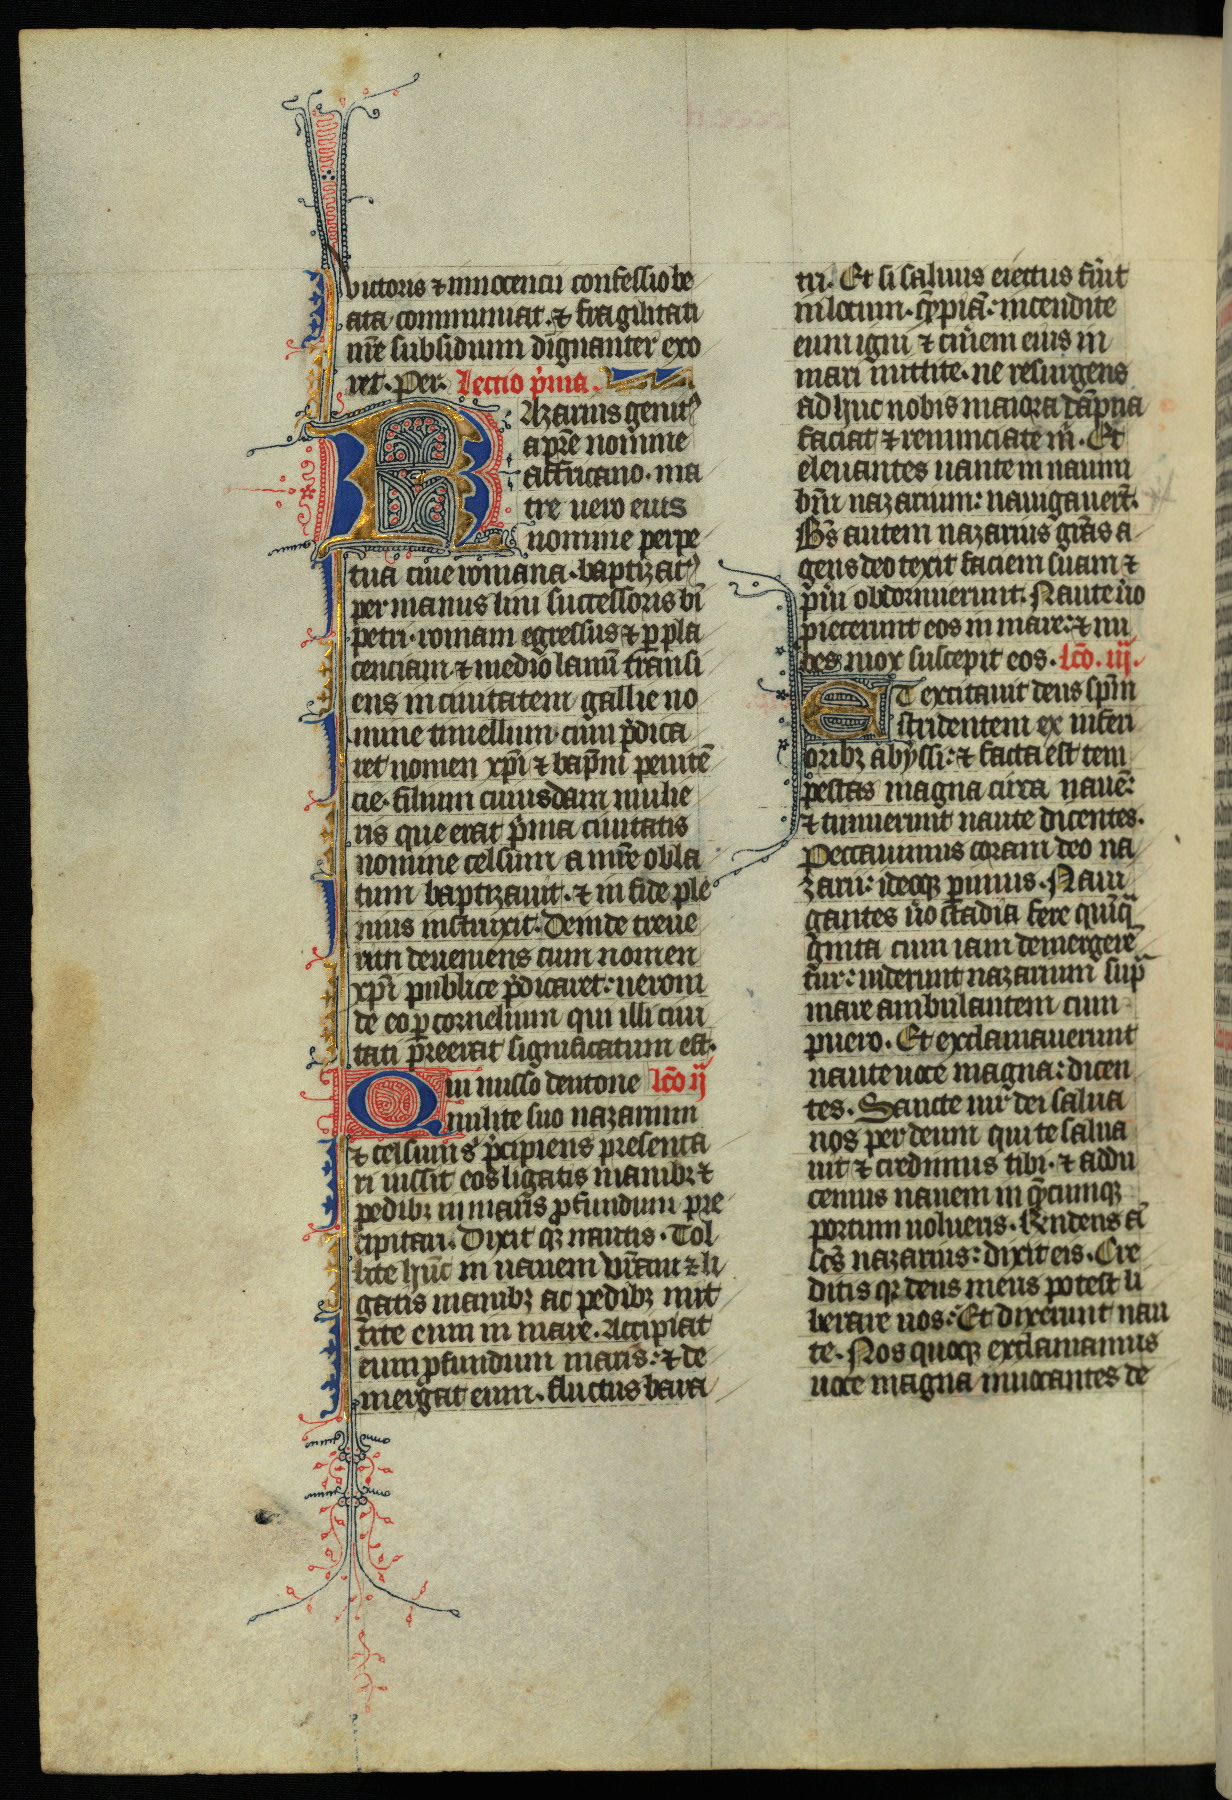 victoris ⁊ innocencii confessio be
ata communiat. ⁊ fragilitati
nr̄e subsidium dignanter exo
ret. Per. Lectio p̄ma.
Nazarius genitꝰ
a pr̄e nomine
affricano. ma
tre uero eius
nomine perpe
tua ciue romana. baptizatꝰ
per manus lini successoris bī
petri. romam egressus ⁊ ꝑ pla
cenciam ⁊ mediolanū transi
ens in ciuitatem gallie no
mine timellum. cum p̄dica
ret nomen xp̄i ⁊ bap̄m penitē
cie. filium cuiusdam mulie
ris que erat p̄ma ciuitatis
nomine celsum a mr̄e obla
tum baptizauit. ⁊ in fide ple
nius instruxit. Deinde treue
rim deueniens cum nomen
xp̄i publice p̄dicaret: neroni
de eo ꝑ cornelium qui illi ciui
tati p̄erat significatum est.
Qui misso dentone lc̄o ij
milite suo nazarium
⁊ celsum s̓ p̄cipiens presenta
ri iussit eos ligatis manibꝫ ⁊
pedibꝫ in maris ꝓfundum pre
cipitari. Dixit qꝫ nautis. Tol
lite hūc in nauem vr̄am ⁊ li
gatis manibꝫ ac pedibꝫ mit
tite eum in mare. Accipiat
eum ꝓfundum maris: ⁊ de
mergat eum. fluctus bara
tri. Et si saluus eiectus fūit
in locum. incendite
eum igni ⁊ cin̄em eius in
mari mittite. ne resurgens
ad huc nobis maiora dāpna
faciat ⁊ renunciate m̄. Et
eleuantes naute in nauim
bm̄ nazarium: nauigauert̄.
Bs̄ autem nazarius grās a
gens deo texit faciem suam ⁊
obdormierunt. Naute ū̓o
ꝓiecerunt eos in mare: ⁊ nu
bes mox suscepit eos. lc̄o. iij.
Et excitauit deus sp̄m
stridentem ex inferi
oribꝫ abyssi: ⁊ facta est tem
pestas magna circa nauē:
⁊ timuerunt naute dicentes.
Peccauimus coram deo na
zarii: ideoqꝫ ꝑimus. Naui
gantes ū̓o stadia fere quīq̄
ginta cum iam demergere
tur: uiderunt nazarium sup̄
mare ambulantem cum
puero. Et exclamauerunt
naute uoce magna: dicen
tes. Sancte uir dei salua
nos per deum qui te salua
uit ⁊ credimus tibi. ⁊ addu
cemus nauem in q̄cumqꝫ
portum uolueris. Rendens ā
scs̄ nazarius: dixit eis. Cre
ditis qꝫ deus meus potest li
berare uos. Et dixerunt nau
te. Nos quoqꝫ exclamamus
uoce magna inuocantes de